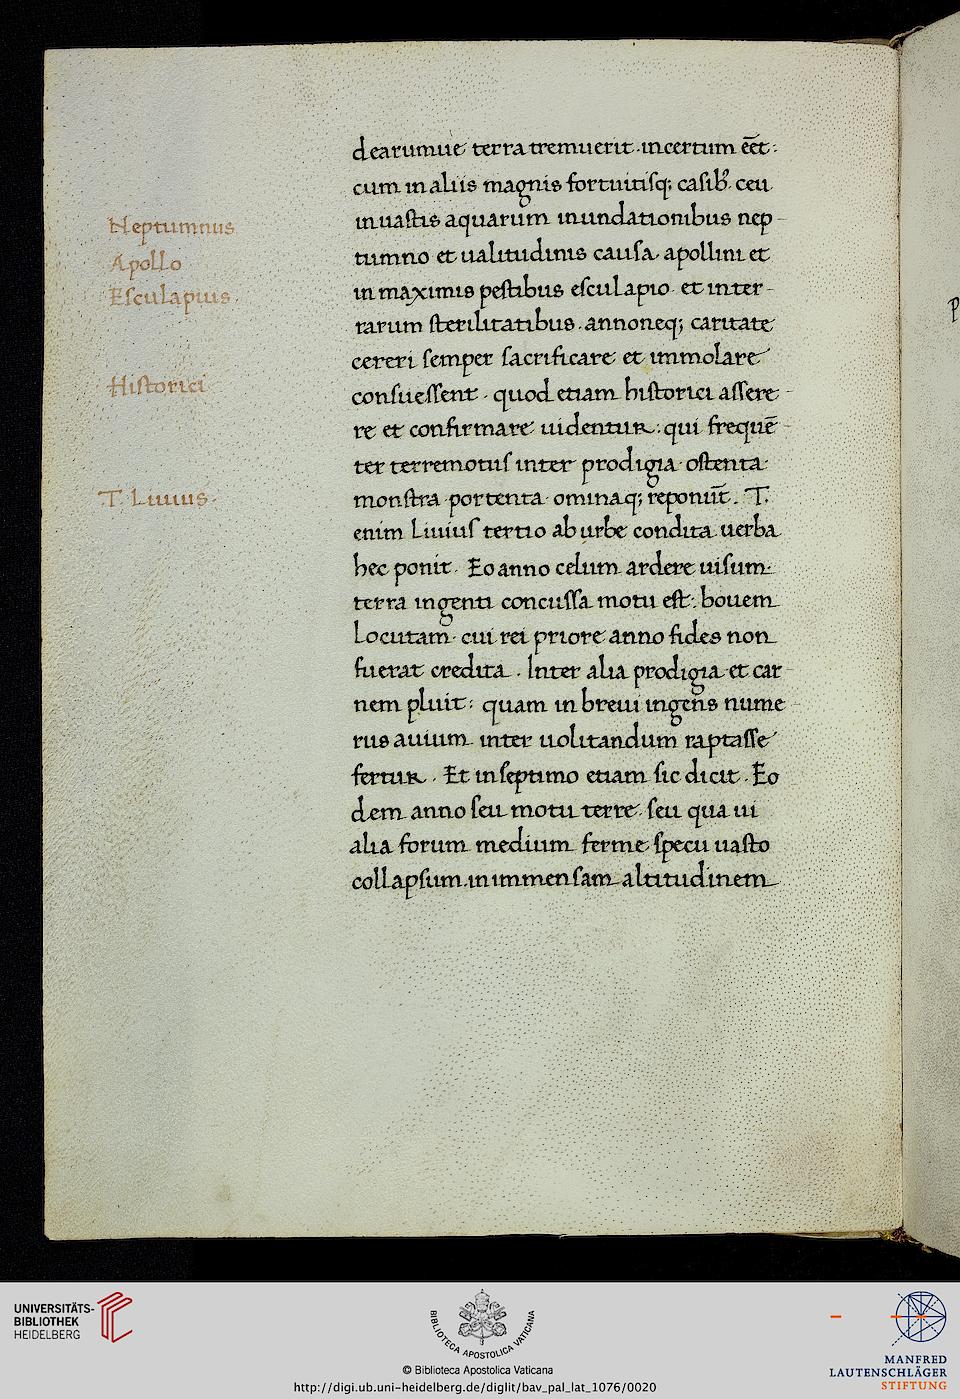 dearumue terra tremuerit. incertum eēt:
cum in aliis magnis fortuitisq; casib3. ceu
in uastis aquarum inundationibus nep-
tumno et ualitudinis causa. apollini et
in maximis pestibus esculapio. et inter-
rarum sterilitatibus. annoneq; caritate
cereri semper sacrificare et immolare
consuessent. quod etiam historici assere-
re et confirmare uidentur: qui frequē-
ter terremotus inter prodigia. ostenta.
monstra. portenta. ominaq; reponūt. T.
enim Liuius tertio ab urbe condita uerba
hec ponit. Eo anno celum ardere uisum.
terra ingenti concussa motu est: bouem
Locutam. cui rei priore anno fides non
fuerat credita. Inter alia prodigia et car-
nem pluit: quam in breui ingens nume-
rus auium inter uolitandum raptasse
fertur. Et in septimo etiam sic dicit. Eo
dem anno seu motu terre. seu qua ui
alia forum medium ferme specu uasto
collapsum. in immensam altitudinem
Neptumnus
Apollo
Esculapius.
Historici
T. Liuius.
UNIVERSITÄTS-
BIBLIOTHEK
HEIDELBERG
BIBLIOTECA APOSTOLICA VATICANA
© Biblioteca Apostolica Vaticana
http://digi.ub.uni-heidelberg.de/diglit/bav_pal_lat_1076/0020
MANFRED
LAUTENSCHLÄGER
STIFTUNG